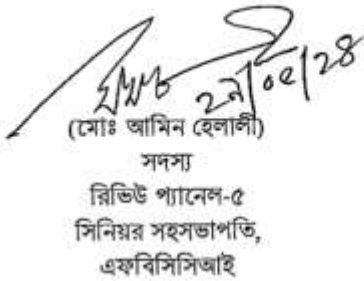 ২৯/০৫/২৪
(মোঃ আমিন হেলালী)
সদস্য
রিভিউ প্যানেল-৫
সিনিয়র সহসভাপতি,
এফবিসিসিআই